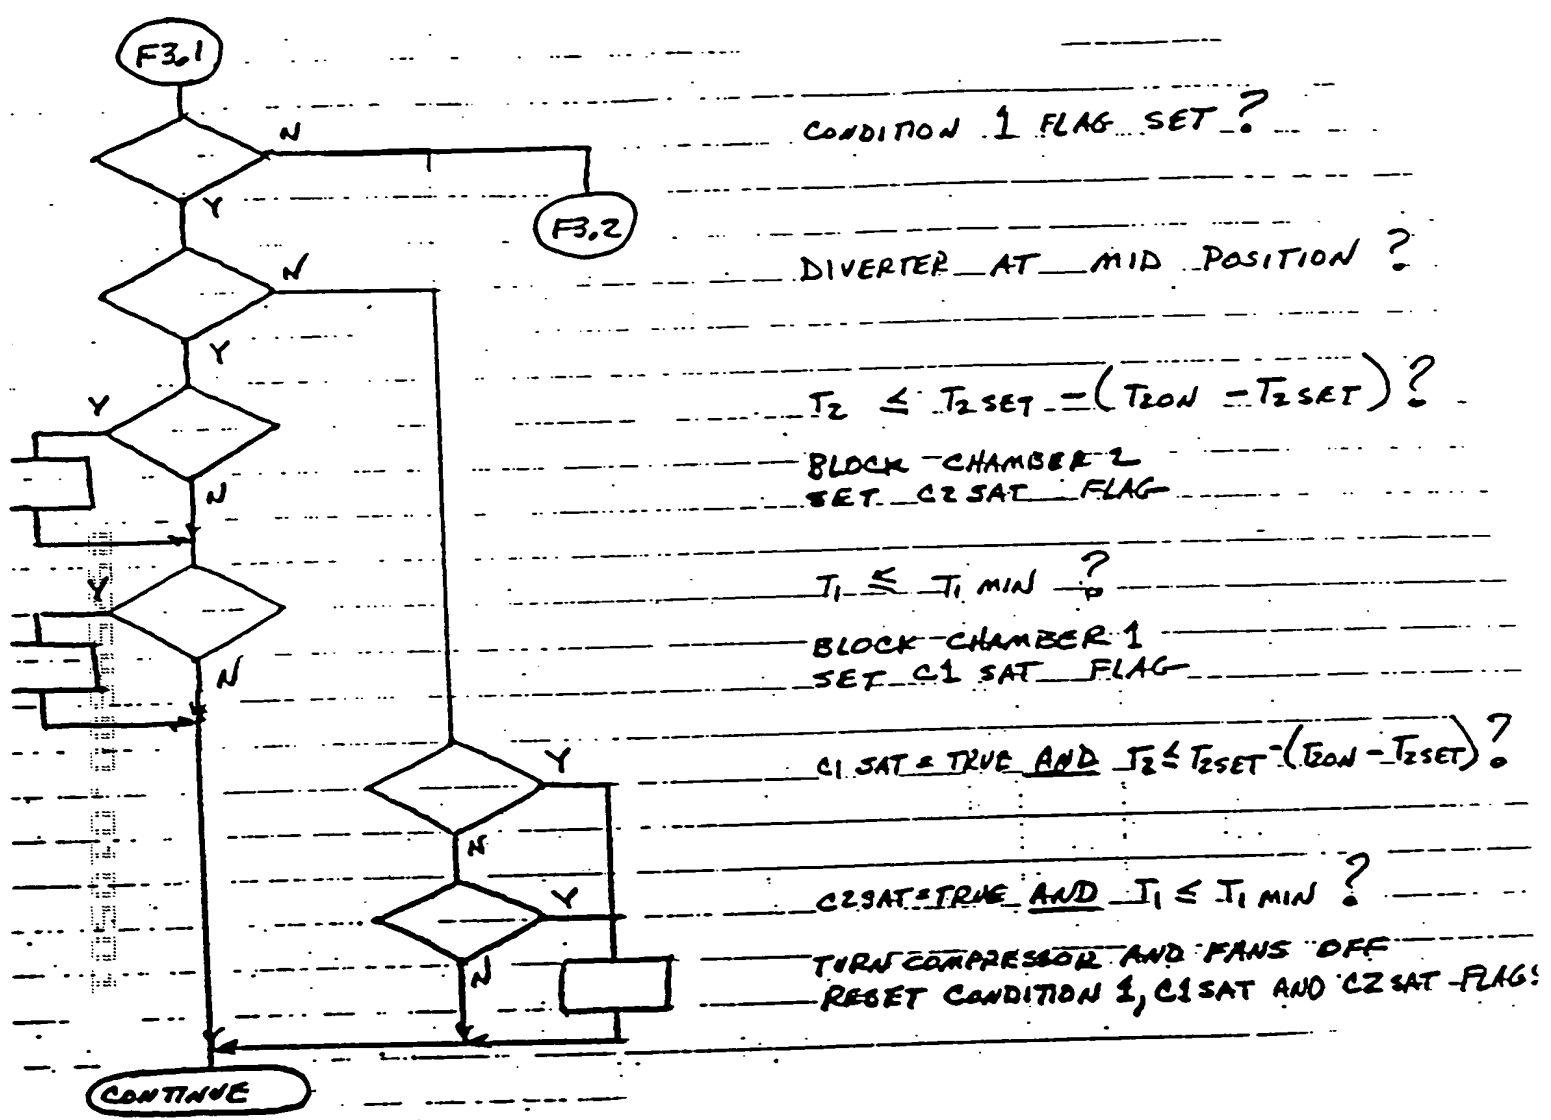 F3.1
N
CONDITION 1 FLAG SET ?
Y
F3.2
N
DIVERTER AT MID POSITION ?
Y
Y
T2 ≤ T2SET - (T2ON - T2SET) ?
N
BLOCK CHAMBER 2
SET C2SAT FLAG
Y
T1 ≤ T1 MIN ?
N
BLOCK CHAMBER 1
SET C1 SAT FLAG
Y
C1 SAT = TRUE AND T2 ≤ T2SET - (T2ON - T2SET) ?
N
Y
C2SAT = TRUE AND T1 ≤ T1 MIN ?
N
TURN COMPRESSOR AND FANS OFF
RESET CONDITION 1, C1SAT AND C2SAT FLAGS
CONTINUE